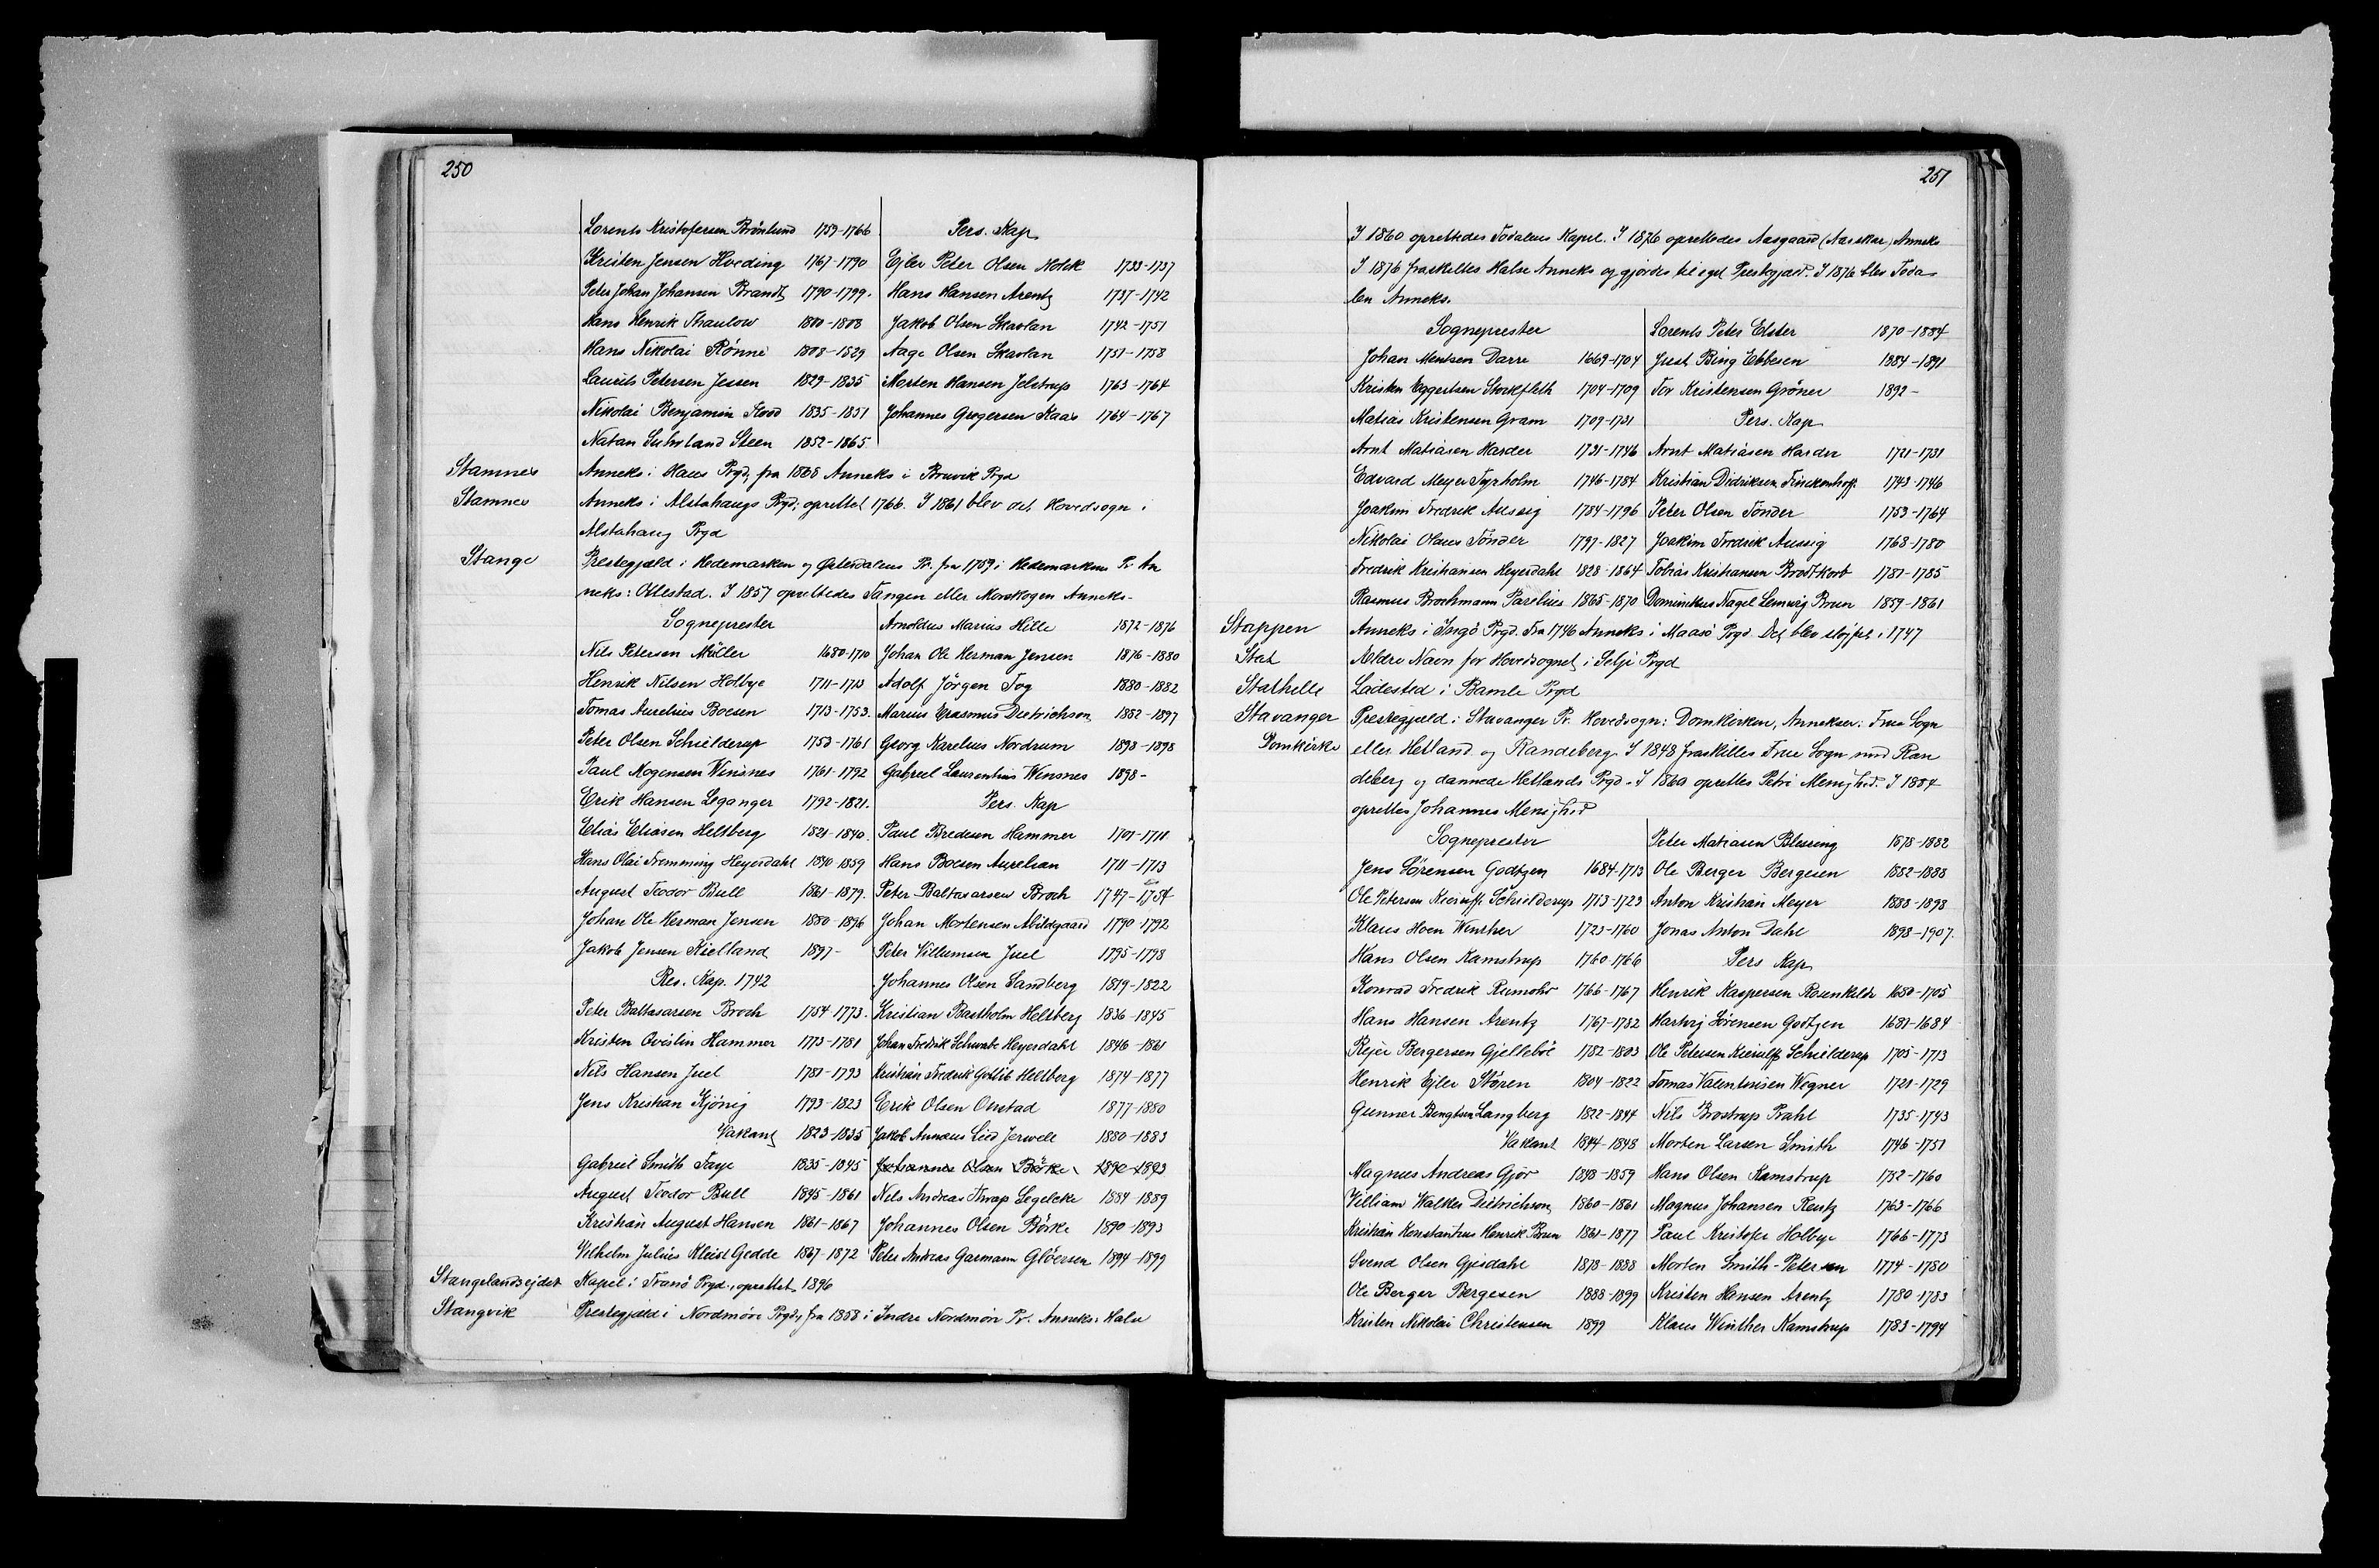 250
Lorents Kristofersen Brönlund 1759-1766
Kristen Jensen Hveding 1767-1790
Peter Johan Johansen Brandt 1790-1799.
Hans Henrik Thaulow 1800-1808
Hans Nikolai Rönne 1808-1829
Laurits Petersen Jessen 1829-1835
Nikolai Benjamin 1835-1851
Natan Suhrland Steen 1852-1865
Pers. Kap
Ejler Peter Olsen Holck 1733-1737
Hans Hansen Arentz 1737-1742
Jakob Olsen Skavlan 1742-1751
Aage Olsen Skavlan 1751-1758
Morten Hansen Jelstrup 1763-1764
Johannes Gregersen Kaas 1764-1767
Stamnes Anneks i Haus Prgd, fra 1868 Anneks i Bruvik Prgd
Stamnes Anneks i Alstahaugs Prgd; oprettet 1766. I 1861 blev det Hovedsogn i
Alstahaug Prgd
Stange Prestegjæld i Hedemarken og Østerdalens Pr. fra 1759 i Hedemarkens Pr. An
neks: Ottestad. I 1857 oprettedes Tangen eller Morskogen Anneks.
Sogneprester
Nils Petersen Müller 1680-1710
Henrik Nilsen Holbye 1711-1713
Tomas Aurelius Boesen 1713-1753.
Peter Olsen Schielderup 1753-1761
Paul Mogensen Winsnes 1761-1792
Erik Hansen Leganger 1792-1821.
Elias Eliasen Heltberg 1821-1840.
Hans Olai Flemming Heyerdahl 1840-1859
August Teodor Bull 1861-1879.
Johan Ole Herman Jensen 1880-1896
Jakob Jensen Kielland 1897-
Res. Kap. 1742
Peter Baltasarsen Broch 1754-1773.
Kristen Qvislin Hammer 1773-1781
Nils Hansen Juel 1781-1793
Jens Kristian Kjönig 1793-1823
Vakant 1823-1835
Gabriel Smith Faye 1835-1845
August Teodor Bull 1845-1861
Kristian August Hansen 1861-1867
Vilhelm Julius Kleist Gedde 1867-1872
Arnoldus Marius Hille 1872-1876
Johan Ole Herman Jensen 1876-1880
Adolf Jörgen Fog 1880-1882
Marius Erasmus Dietrichson 1882-1897
Georg Karelius Nordrum 1898-1898
Gabriel Laurentius Winsnes 1898-
Pers. Kap
Paul Bredesen Hammer 1701-1711
Hans Boesen Aurelian 1711-1713
Peter Baltasarsen Broch 1747-1754
Johan Mortensen Abildgaard 1790-1792
Peter Villumsen Juel 1795-1798
Johannes Olsen Sandberg 1819-1822
Kristian Bastholm Heltberg 1836-1845
Johan Fredrik Schwabe Heyerdahl 1846-1861
Kristian Fredrik Gotlib Heltberg 1874-1877
Erik Olsen Onstad 1877-1880
Jakob Annæus Lied Jerwell 1880-1883
Johannes Olsen Börke 1890-1893
Nils Andreas Thrap Segelcke 1884-1889
Johannes Olsen Börke 1890-1893
Peter Andreas Garmann Glöersen 1894-1899
Stangelandsejdet Kapel i Tranö Prgd., oprettet 1896
Stangvik Prestegjæld i Nordmöre Prgd, fra 1858 i Indre Nordmöre Pr. Anneks: Halse
251
I 1860 oprettedes Todalens Kapel. I 1876 oprettedes Aasgaard (Aasskar) Anneks
I 1876 fraskiltes Halse Anneks og gjördes til eget Prestegjæld. I 1876 blev Toda
len Anneks.
Sogneprester
Johan Mentsen Darre 1669-1704
Kristen Eggertsen Stockfleth 1704-1709
Matias Kristensen Gram 1709-1731
Arnt Matiasen Harder 1731-1746
Edvard Meyer Tyrholm 1746-1784
Joakim Fredrik Aussig 1784-1796
Nikolai Olaus Tönder 1797-1827
Fredrik Kristiansen Heyerdahl 1828-1864
Rasmus Brochmann Parelius 1865-1870
Lorents Peter Elster 1870-1884
Just Bing Ebbesen 1884-1891
Tor Kristensen Gröner 1892-
Pers. Kap
Arnt Matiasen Harder 1721-1731
Kristian Didriksen Finckenhoff 1743-1746
Peter Olsen Tönder 1753-1764
Joakim Fredrik Aussig 1768-1780
Tobias Kristiansen Brodtkorb 1781-1785
Dominikus Nagel Lemvig Brun 1859-1861
Stappen Anneks i Ingö Prgd. Fra 1746 Anneks i Maasö Prgd. Det blev slöjfet i 1747
Stat Ældre Navn for Hovedsognet i Selje Prgd
Stathelle Ladested i Bamle Prgd
Stavanger Prestegjæld i Stavanger Pr. Hovedsogn: Domkirken, Annekser: Frue Sogn
Domkirke eller Hetland og Randeberg. I 1848 fraskiltes Frue Sogn med Ran
deberg og dannede Hetlands Prgd. I 1860 oprettes Petri Menighed. I 1884
oprettes Johannes Menighed
Sogneprester
Jens Sörensen Godtzen 1684-1713
Ole Petersen Kierulff Schielderup 1713-1723
Klaus Hoen Winther 1723-1760
Hans Olsen Kamstrup 1760-1766
Konrad Fredrik Rumohr 1766-1767
Hans Hansen Arentz 1767-1782
Rejer Bergersen Gjelleböl 1782-1803
Henrik Ejler Stören 1804-1822
Gunner Bengtsen Langberg 1822-1844
Vakant 1844-1848
Magnus Andreas Gjör 1848-1859
Villiam Walkles Dietrichson 1860-1861
Kristian Konstantius Henrik Brun 1861-1877
Svend Olsen Gjesdahl 1878-1888
Ole Berger Bergesen 1888-1899
Kristen Nikolai Christensen 1899
Peter Matiasen Blessing 1878-1882
Ole Berger Bergesen 1882-1888
Anton Kristian Meyer 1888-1898
Jonas Anton Dahl 1898-1907.
Pers Kap
Henrik Kaspersen Rosenkilde 1680-1705
Hartvig Sörensen Godtzen 1681-1684
Ole Petersen Kierulff Schielderup 1705-1713
Tomas Valentinsen Wegner 1721-1729
Nils Brostrup Prahl 1735-1743
Morten Larsen Smith 1746-1751
Hans Olsen Kamstrup 1752-1760
Magnus Johansen Rentz 1763-1766
Paul Kristofer Holbye 1766-1773
Morten Smith-Petersen 1774-1780
Kristen Hansen Arentz 1780-1783
Klaus Winther Kamstrup 1783-1794